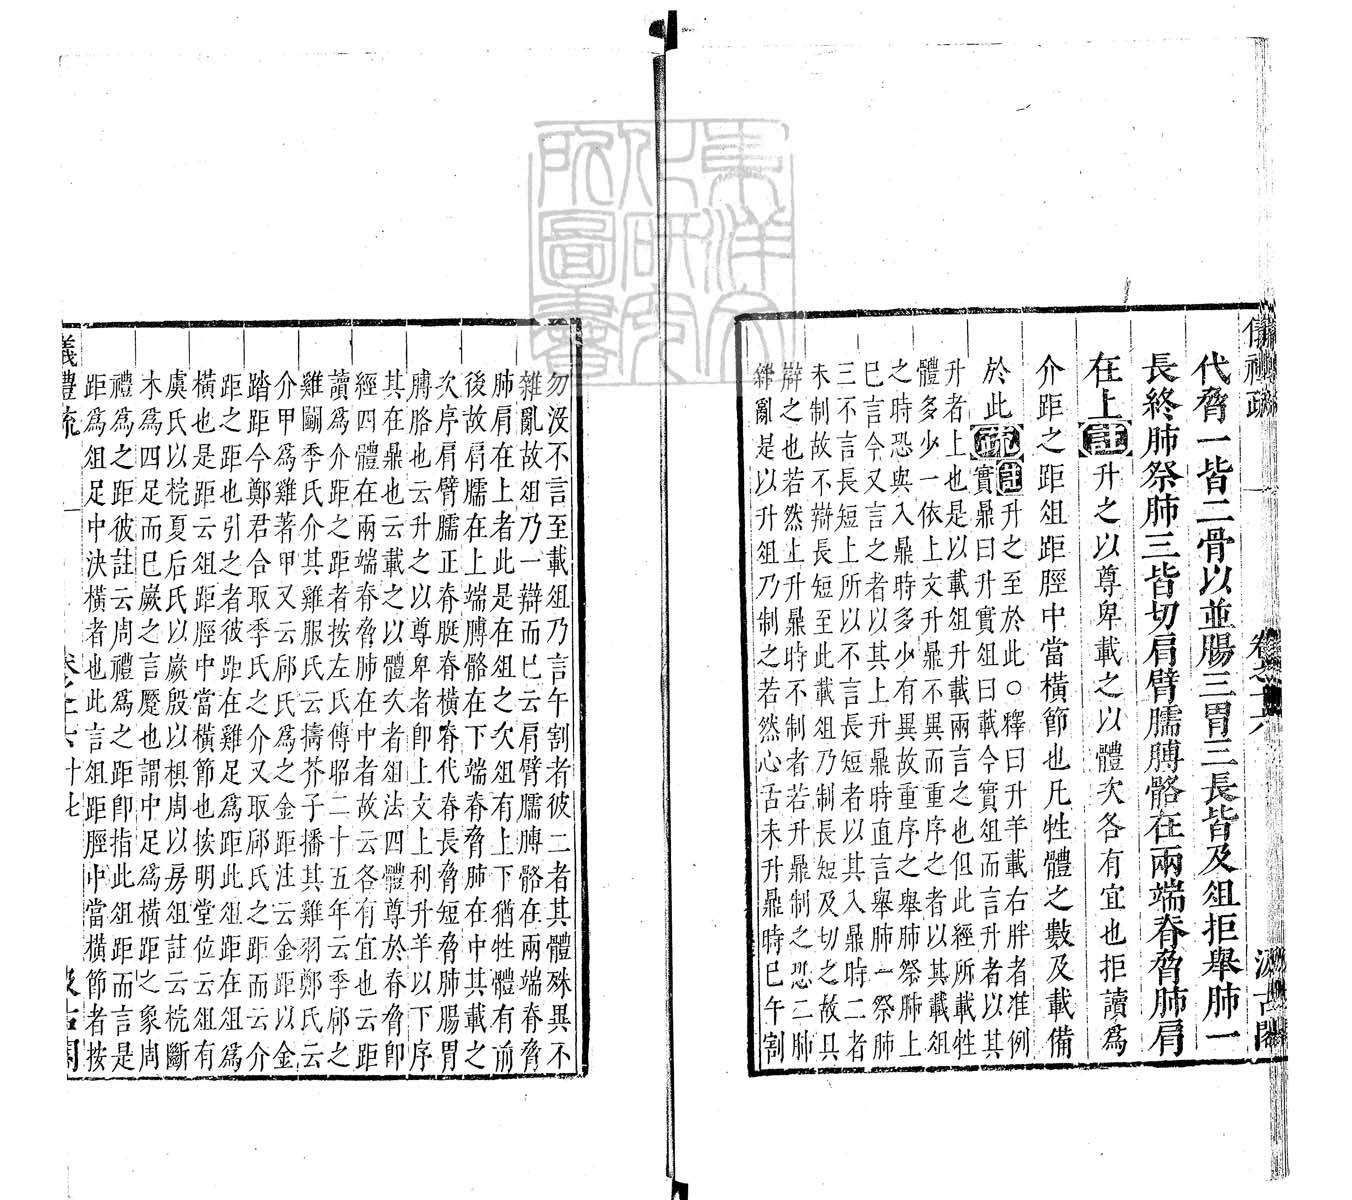 代脅一皆二骨以並腸三胃三長皆及俎拒舉肺一
長終肺祭肺三皆切肩臂臑膊骼在兩端脊脅肺肩
在上註升之以尊卑載之以體次各有宜也拒讀爲
介距之距俎距脛中當橫節也凡牲體之數及載備
於此疏註升之至於此○釋曰升羊載右胖者准例
實鼎曰升實俎曰載今實俎而言升者以其
升者上也是以載俎升載兩言之也但此經所載牲
體多少一依上文升鼎不異而重序之者以其載俎
之時恐與入鼎時多少有異故重序之舉肺祭肺上
已言今又言之者以其上升鼎時直言舉肺一祭肺
三不言長短上所以不言長短者以其入鼎時二者
未制故不辯長短至此載俎乃制長短及切之故具
辯之也若然上升鼎時不制者若升鼎制之恐二肺
雜亂是以升俎乃制之若然心舌未升鼎時已午割
勿沒不言至載俎乃言午割者彼二者其體殊異不
雜亂故俎乃一辯而已云肩臂臑膊骼在兩端脊脅
肺肩在上者此是在俎之次俎有上下猶牲體有前
後故肩臑在上端膊骼在下端脊脅肺在中其載之
次序肩臂臑正脊脡脊橫脊代脊長脅短脅肺腸胃
膊胳也云升之以尊卑者卽上文上利升羊以下序
其在鼎也云載之以體次者俎法四體尊於脊脅卽
經四體在兩端脊脅肺在中者故云各有宜也云距
讀爲介距之距者按左氏傳昭二十五年云季郈之
雞鬭季氏介其雞服氏云擣芥子播其雞羽鄭氏云
介甲爲雞著甲又云郈氏爲之金距注云金距以金
踏距今鄭君合取季氏之介又取郈氏之距而云介
距之距也引之者彼距在雞足爲距此俎距在俎爲
橫也是距云俎距脛中當橫節也按明堂位云俎有
虞氏以梡夏后氏以嶡殷以椇周以房俎註云梡斷
木爲四足而已嶡之言蹷也謂中足爲橫距之象周
禮爲之距彼註云周禮爲之距卽指此俎距而言是
距爲俎足中決橫者也此言俎距脛中當橫節者按
儀禮疏 卷之十六 十七 汲古閣